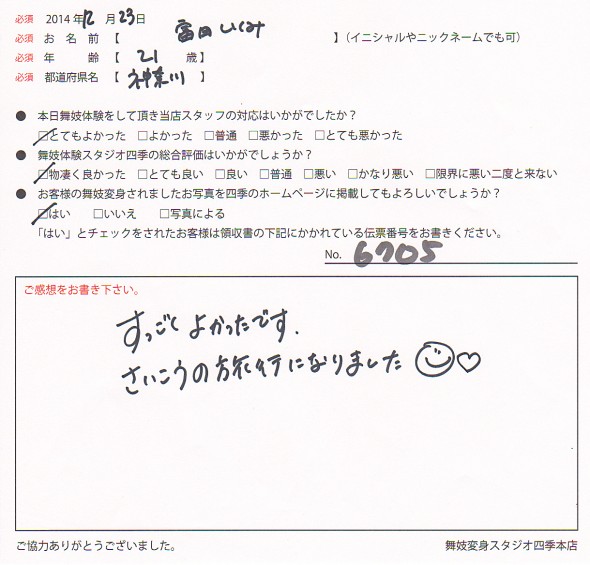 必須 2014年12月23日
必須 お名前【 富田いくみ 】(イニシャルやニックネームでも可)
必須 年齢【 21 歳】
必須 都道府県名【 神奈川 】
● 本日舞妓体験をして頂き当店スタッフの対応はいかがでしたか？
☑とてもよかった □よかった □普通 □悪かった □とても悪かった
● 舞妓体験スタジオ四季の総合評価はいかがでしょうか？
☑物凄く良かった □とても良い □良い □普通 □悪い □かなり悪い □限界に悪い二度と来ない
● お客様の舞妓変身されましたお写真を四季のホームページに掲載してもよろしいでしょうか？
☑はい □いいえ □写真による
「はい」とチェックをされたお客様は領収書の下記にかかれている伝票番号をお書きください。
No. 6705
ご感想をお書き下さい。
すっごくよかったです.
さいこうの旅行になりました☺♡
ご協力ありがとうございました。 舞妓変身スタジオ四季本店